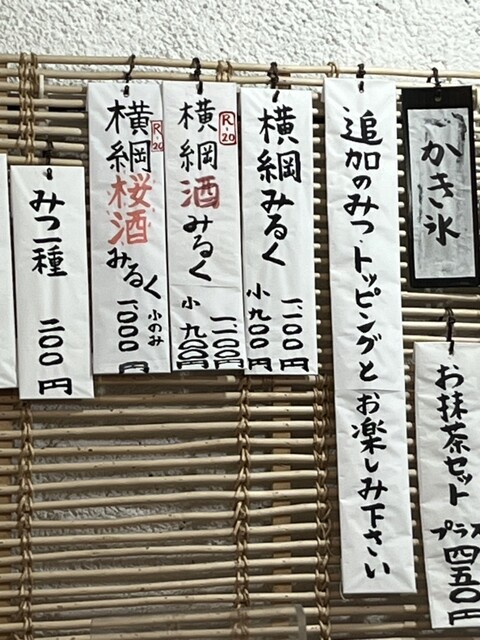 かき氷
お抹茶セット
プラス
四五〇円
追加のみつ、トッピングとお楽しみ下さい
横綱みるく
一、一〇〇円
小 九〇〇円
R-20
横綱酒みるく
一、一〇〇円
小 九〇〇円
R-20
横綱桜酒みるく
小のみ
一、〇〇〇円
みつ一種 二〇〇円